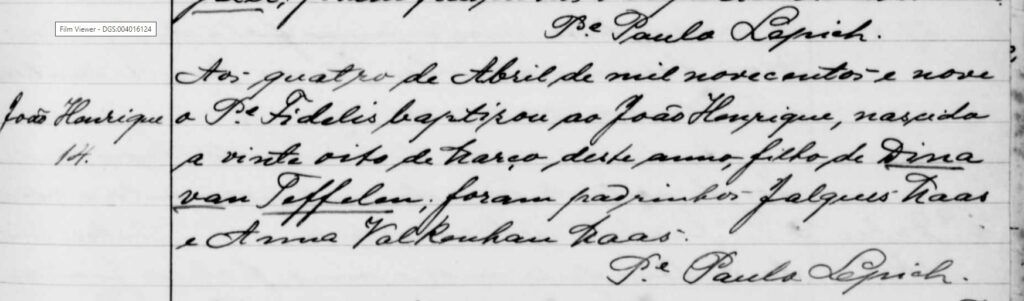 Film Viewer - DGS:004016124
Pe Paulo Lepich.
Aos quatro de Abril de mil novecentos e nove
João Henrique
14.
o Pe Fidelis baptizou ao João Henrique, nascido
a vinte oito de Março deste anno, filho de Dina
van Teffelen; foram padrinhos Jalques Maas
e Anna Valkenhan Maas.
Pe Paulo Lepich.